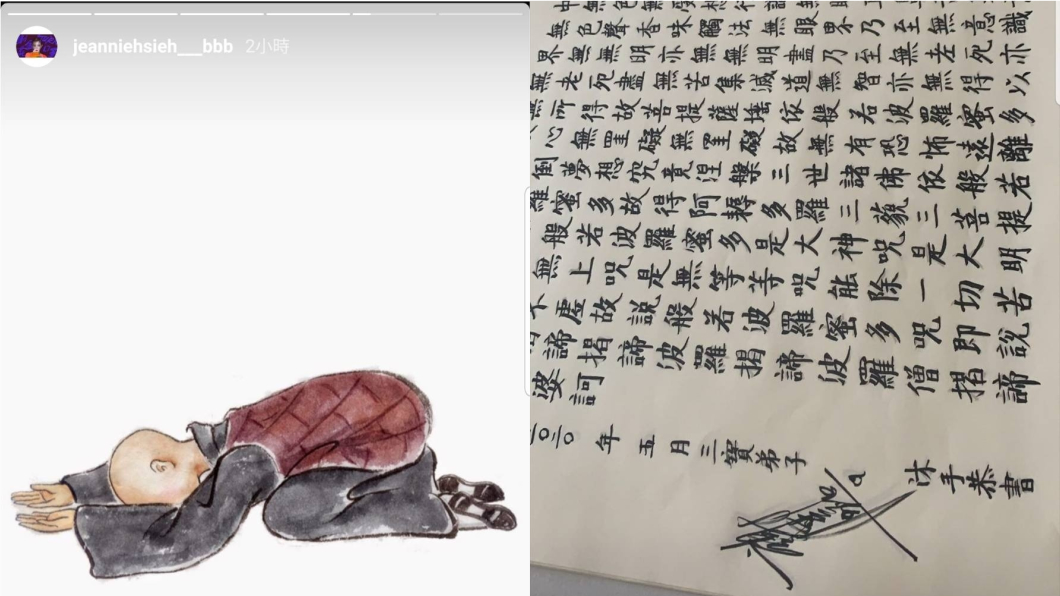 jeanniehsieh__bbb 2小時
無色聲香味觸法無眼界乃至無意識
界無無明亦無無明盡乃至無老死亦
無老死盡無苦集滅道無智亦無得以
無所得故菩提薩埵依般若波羅蜜多
心無罣礙無罣礙故無有恐怖遠離
倒夢想究竟涅槃三世諸佛依般若
羅蜜多故得阿耨多羅三藐三菩提
般若波羅蜜多是大神咒是大明
無上咒是無等等咒能除一切苦
不虛故說般若波羅蜜多咒即說
諦揭諦波羅揭諦波羅僧揭諦
婆訶
二〇二〇年五月三寶弟子
沐手恭書